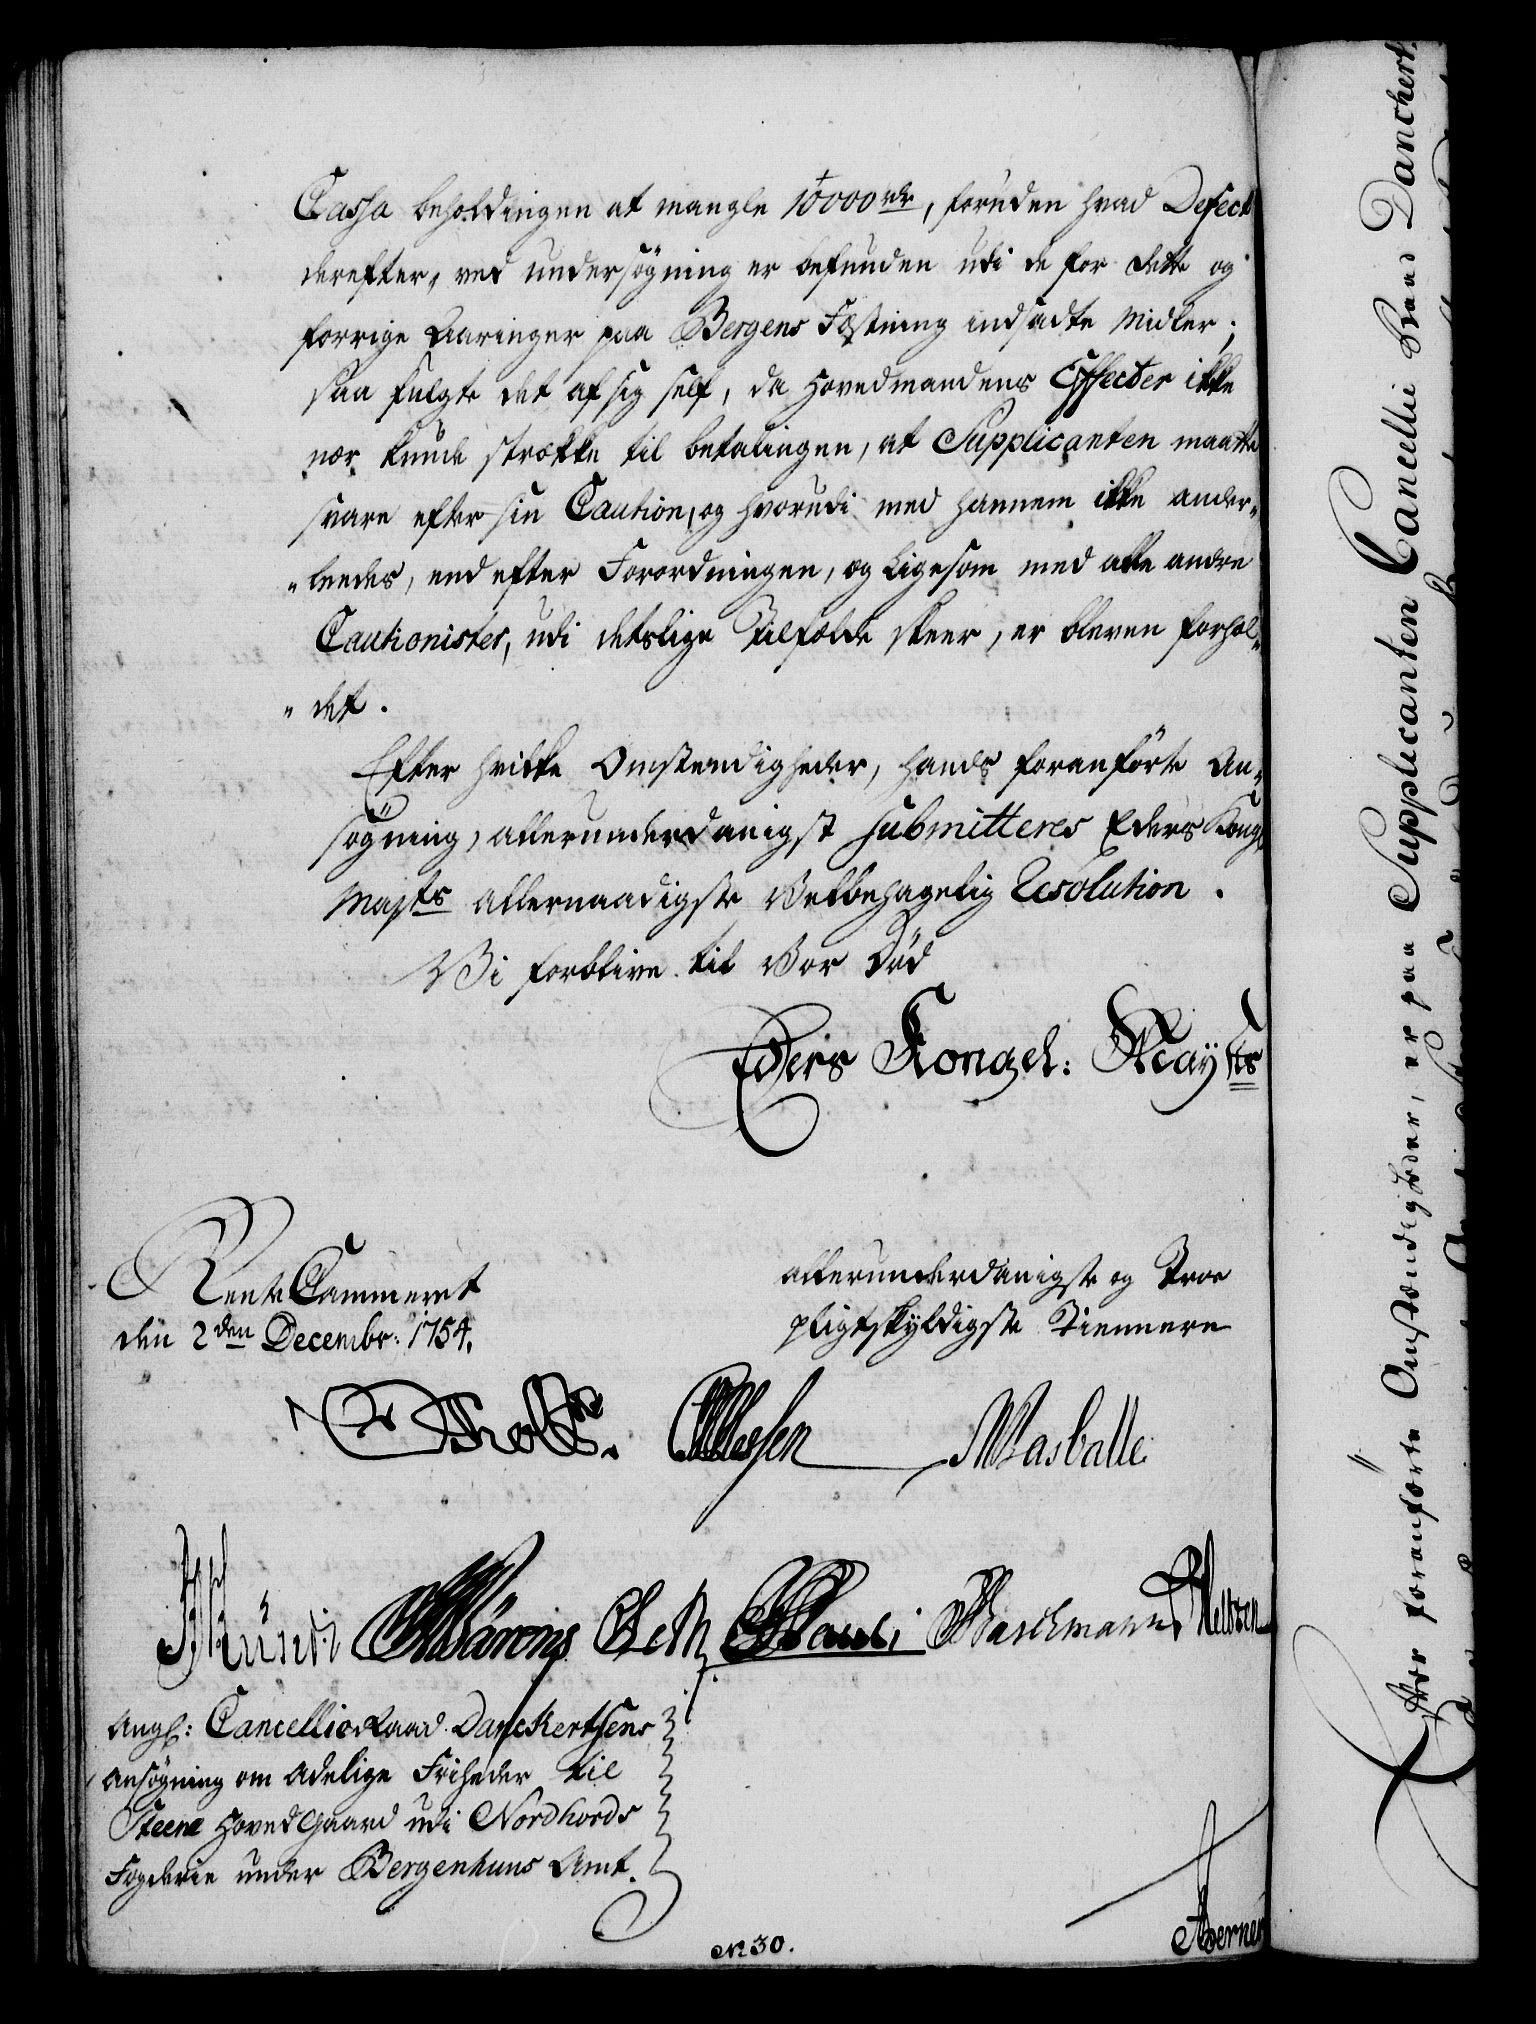 Cassa beholdingen at mangle 10000 rdr, foruden hvad Defect
derefter, ved undersøgning er befunden udi de for dette og
forrige Aaringer paa Bergens Fæstning indsadte Midler;
saa fulgte det af sig self, da Hovedmandens Effecter ikke
nær kunde strække til betalingen, at Supplicanten maatte
svare efter sin Caution, og hvorudi med hannem ikke ander„
„leedes, end efter Forordningen, og ligesom med alle andre
Cautionister, udi deslige Tilfælde skeer, er bleven forhol„
„det.
Efter hvilke Omstændigheder, hands foranførte An„
søgning, allerunderdanigst submitteres Eders Kongl
Majts allernaadigste Velbehagelig Resolution.
Vi forblive til Vor Død
Eders Kongel: Mayts
Rente Cammeret
den 2den Decembr: 1754.
allerunderdanigste og Troe
pligtskyldigste Tiennere
Masballe
Pauli
Angl: Cancellieraad Danckertsens
Ansøgning om Adelige Friheder til
Steene Hovedgaard udi Nordhords
Fogderie under Bergenhuus Amt.
No 30.
foranførte Omstændigheder, er paa Supplicanten Cancellie Raad Danckert